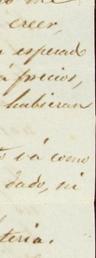 me
creer,
esperado
á precios,
hubieran
vá como
dado, ni
teria.